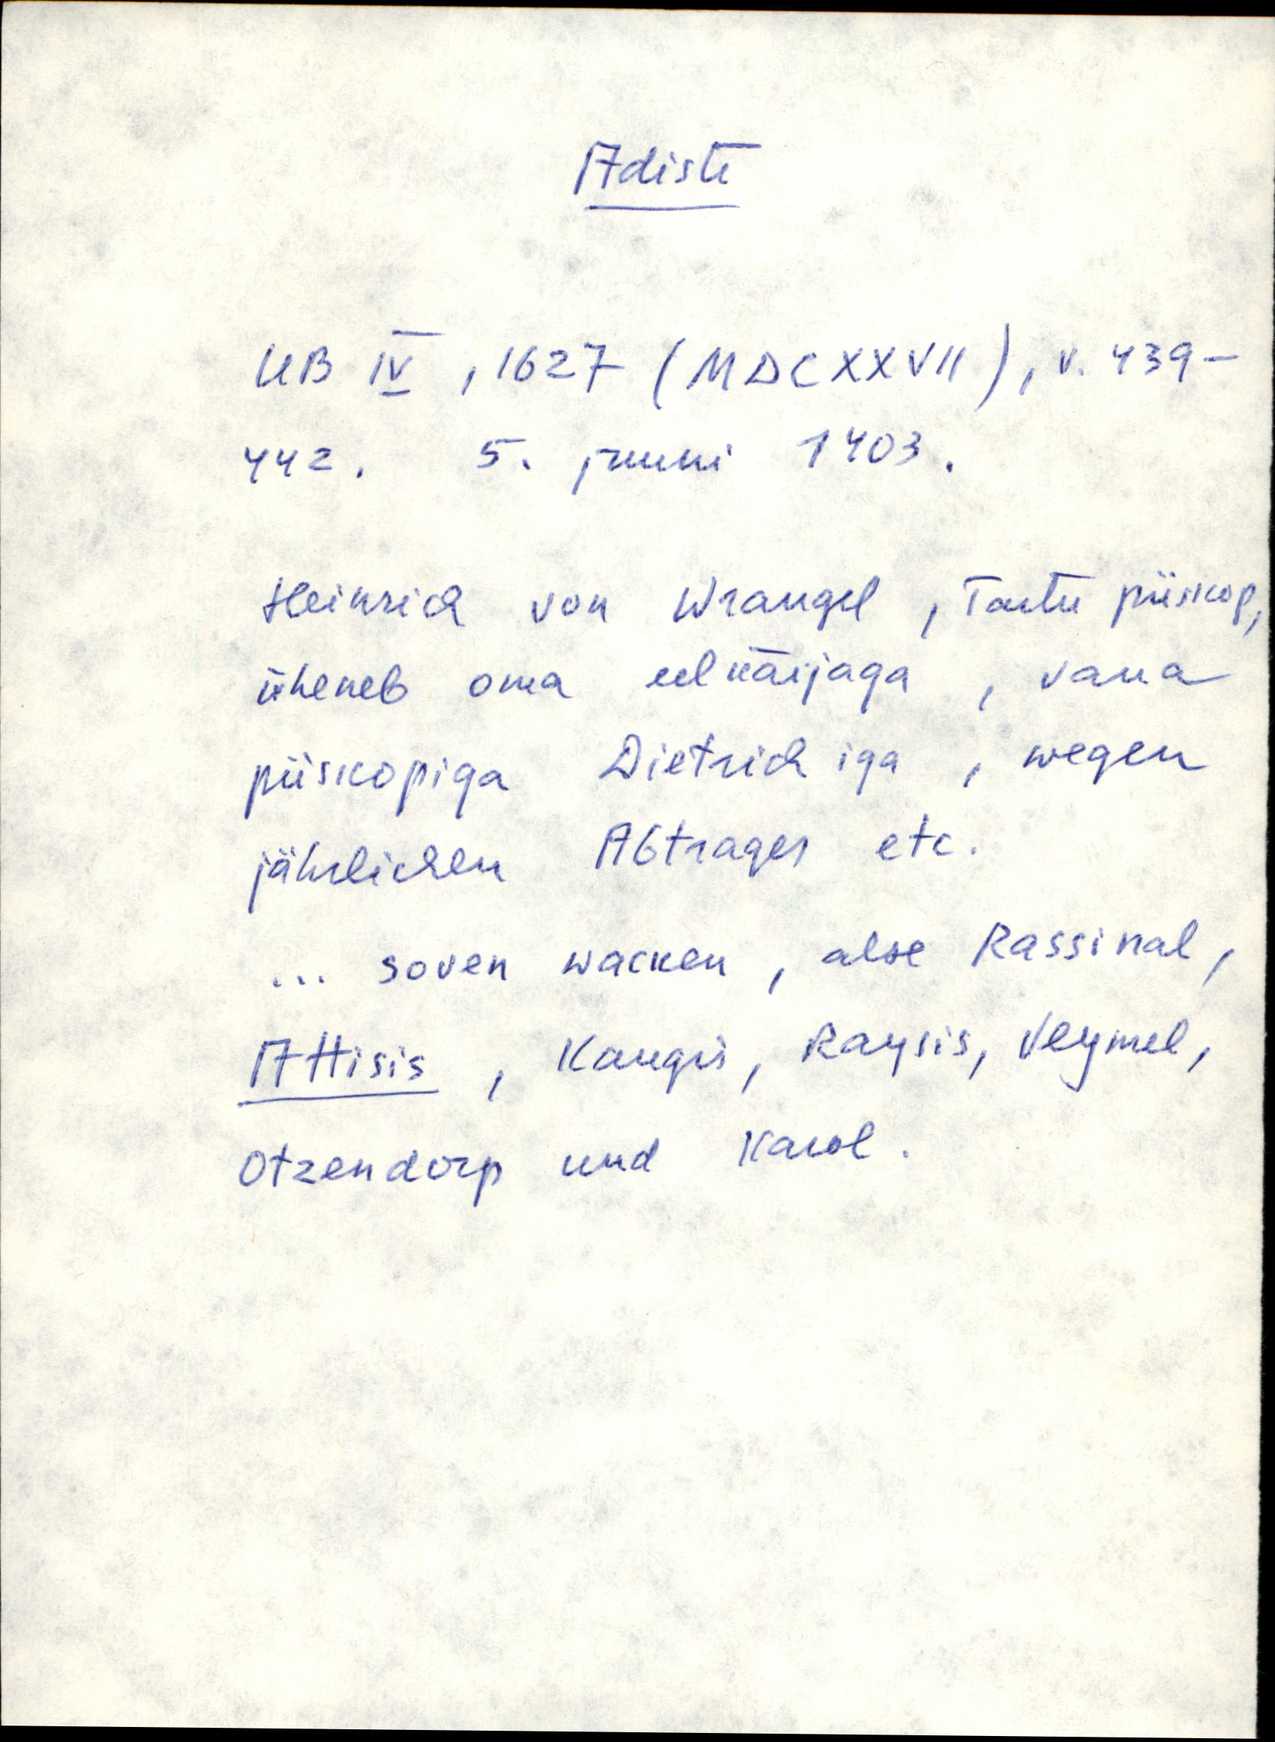 Adiste
UB IV, 1627 (MDCXXVII), v. 439-
442. 5. juuni 1403.
Heinrich von Wrangel, Tartu piiskop,
üheneb oma eelkäijaga, vana
piiskopiga Dietrichiga, wegen
jährlichen Abtrages etc.
... soven wacken, alse Rassinal,
Attisis, Kangis, Raysis, Veymel,
Otzendorp und Karol.